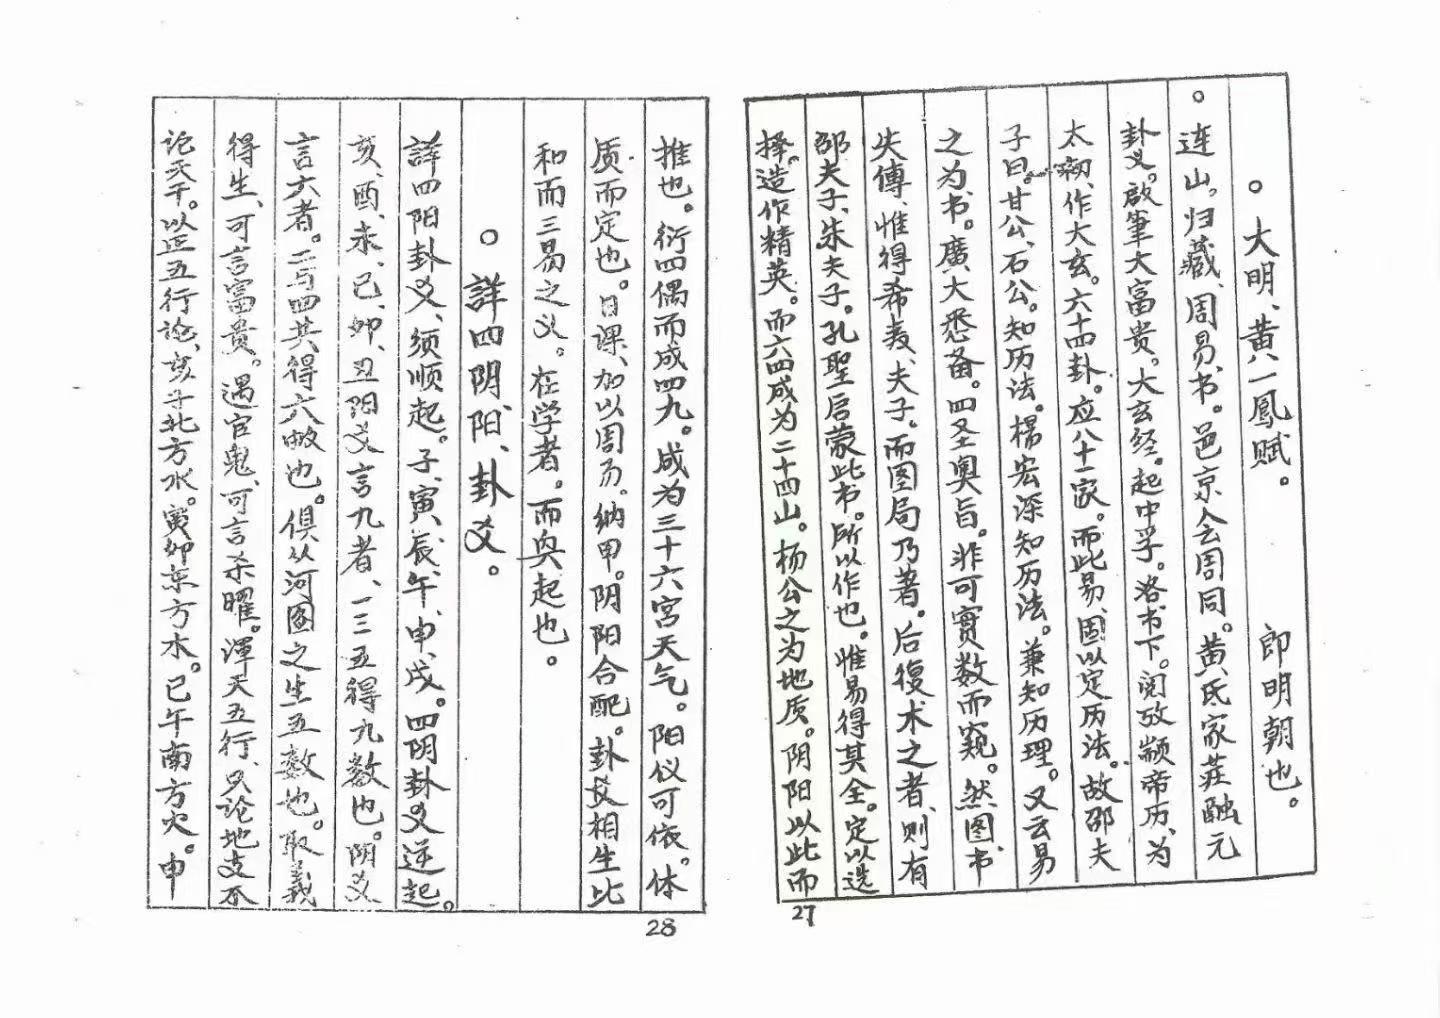 。大明、黄一鳳赋。 即明朝也。
。连山。归藏、周易、书。邑京会周同。黄氏家莊融元
卦义。啟筆大富贵。大玄经。起中孚。洛书下。阅攷颛帝历、为
太初、作大玄。六十四卦。应八十一家。而此易、固以定历法。故邵夫
子曰。甘公、石公。知历法。楊宏深知历法。兼知历理。又云易
之为书。廣大悉备。四圣奥旨。非可實数而窺。然图书
失傳、惟得希夷、夫子。而图局乃著。后復术之者、则有
邵夫子、朱夫子。孔聖启蒙此书。所以作也。惟易得其全。定以选
择。造作精英。而六四成为二十四山。杨公之为地质。阴阳以此而
27
推也。衍四偶而成四九。成为三十六宫天气。阳仪可依。体
质而定也。日课、加以周易。纳甲。阴阳合配。卦爻相生比
和而三易之义。在学者。而奥起也。
。詳四阴、阳、卦爻。
詳四阳卦爻、须顺起。子、寅、辰、午、申、戌。四阴卦爻逆起。
亥、酉、未、巳、卯、丑阳爻言九者、一三五得九数也。阴爻
言六者。二与四共得六散也。俱从河图之生五数也。取義
得生、可言富贵。遇官鬼、可言杀曜。渾天五行、只论地支不
论天干。以正五行论、亥子北方水。寅卯东方木。巳午南方火。申
28